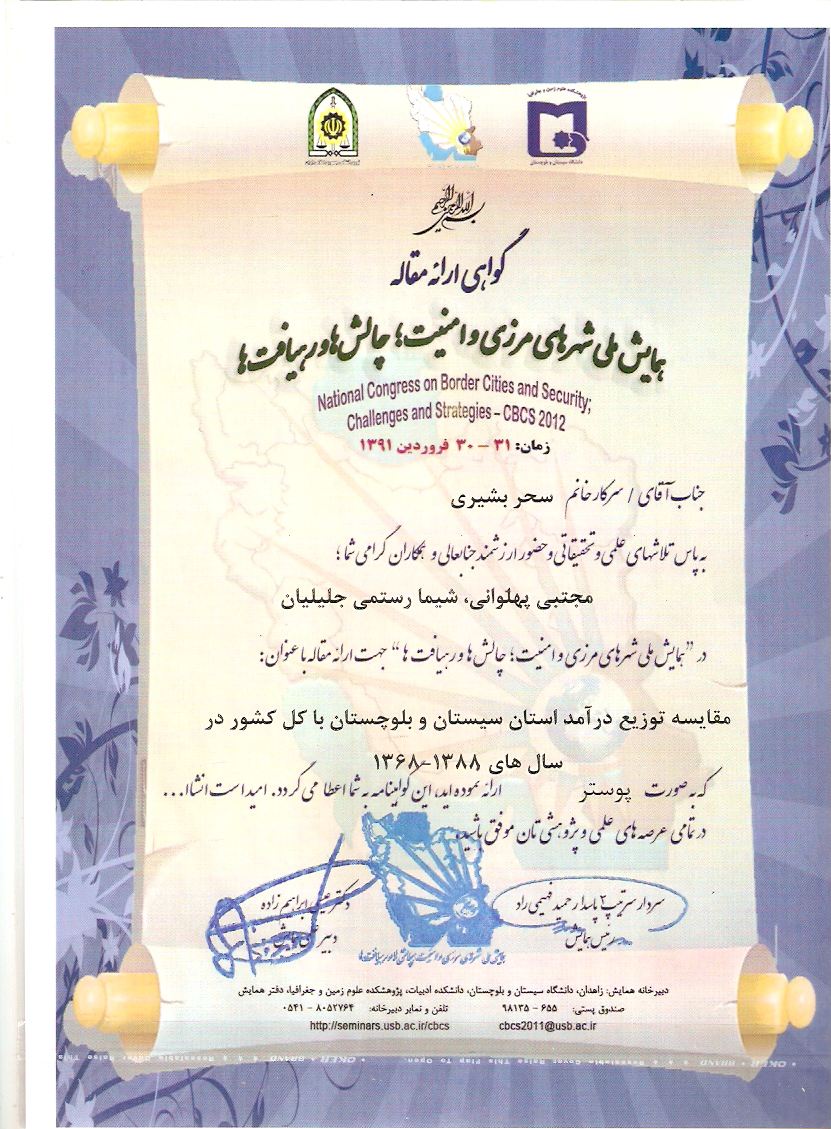 پژوهشکده علوم زمین و جغرافیا
دانشگاه سیستان و بلوچستان
بسم الله الرحمن الرحیم
گواهی ارائه مقاله
همایش ملی شهرهای مرزی و امنیت؛ چالش ها و رهیافت ها
National Congress on Border Cities and Security;
Challenges and Strategies – CBCS 2012
زمان: ۳۱ – ۳۰ فروردین ۱۳۹۱
جناب آقای / سرکار خانم سحر بشیری
به پاس تلاشهای علمی و تحقیقاتی و حضور ارزشمند جنابعالی و همکاران گرامی شما؛
مجتبی پهلوانی، شیما رستمی جلیلیان
در "همایش ملی شهرهای مرزی و امنیت؛ چالش ها و رهیافت ها" جهت ارائه مقاله با عنوان:
مقایسه توزیع درآمد استان سیستان و بلوچستان با کل کشور در
سال های ۱۳۸۸-۱۳۶۸
که به صورت پوستر ارائه نموده اید، این گواهینامه به شما اعطا می گردد. امید است انشاا...
در تمامی عرصه های علمی و پژوهشی تان موفق باشید.
سردار سرتیپ ۲ پاسدار حمید فهیمی راد
رئیس همایش
دکتر عیسی ابراهیم زاده
دبیر علمی همایش
همایش ملی شهرهای مرزی و امنیت چالش ها و رهیافت ها
دبیرخانه همایش: زاهدان، دانشگاه سیستان و بلوچستان، دانشکده ادبیات، پژوهشکده علوم زمین و جغرافیا، دفتر همایش
صندوق پستی: ۶۵۵ – ۹۸۱۳۵ تلفن و نمابر دبیرخانه: ۸۰۵۲۷۶۴ – ۰۵۴۱
http://seminars.usb.ac.ir/cbcs cbcs2011@usb.ac.ir
OKER • BRAND Resealable Cover Raise This Flap To Open.